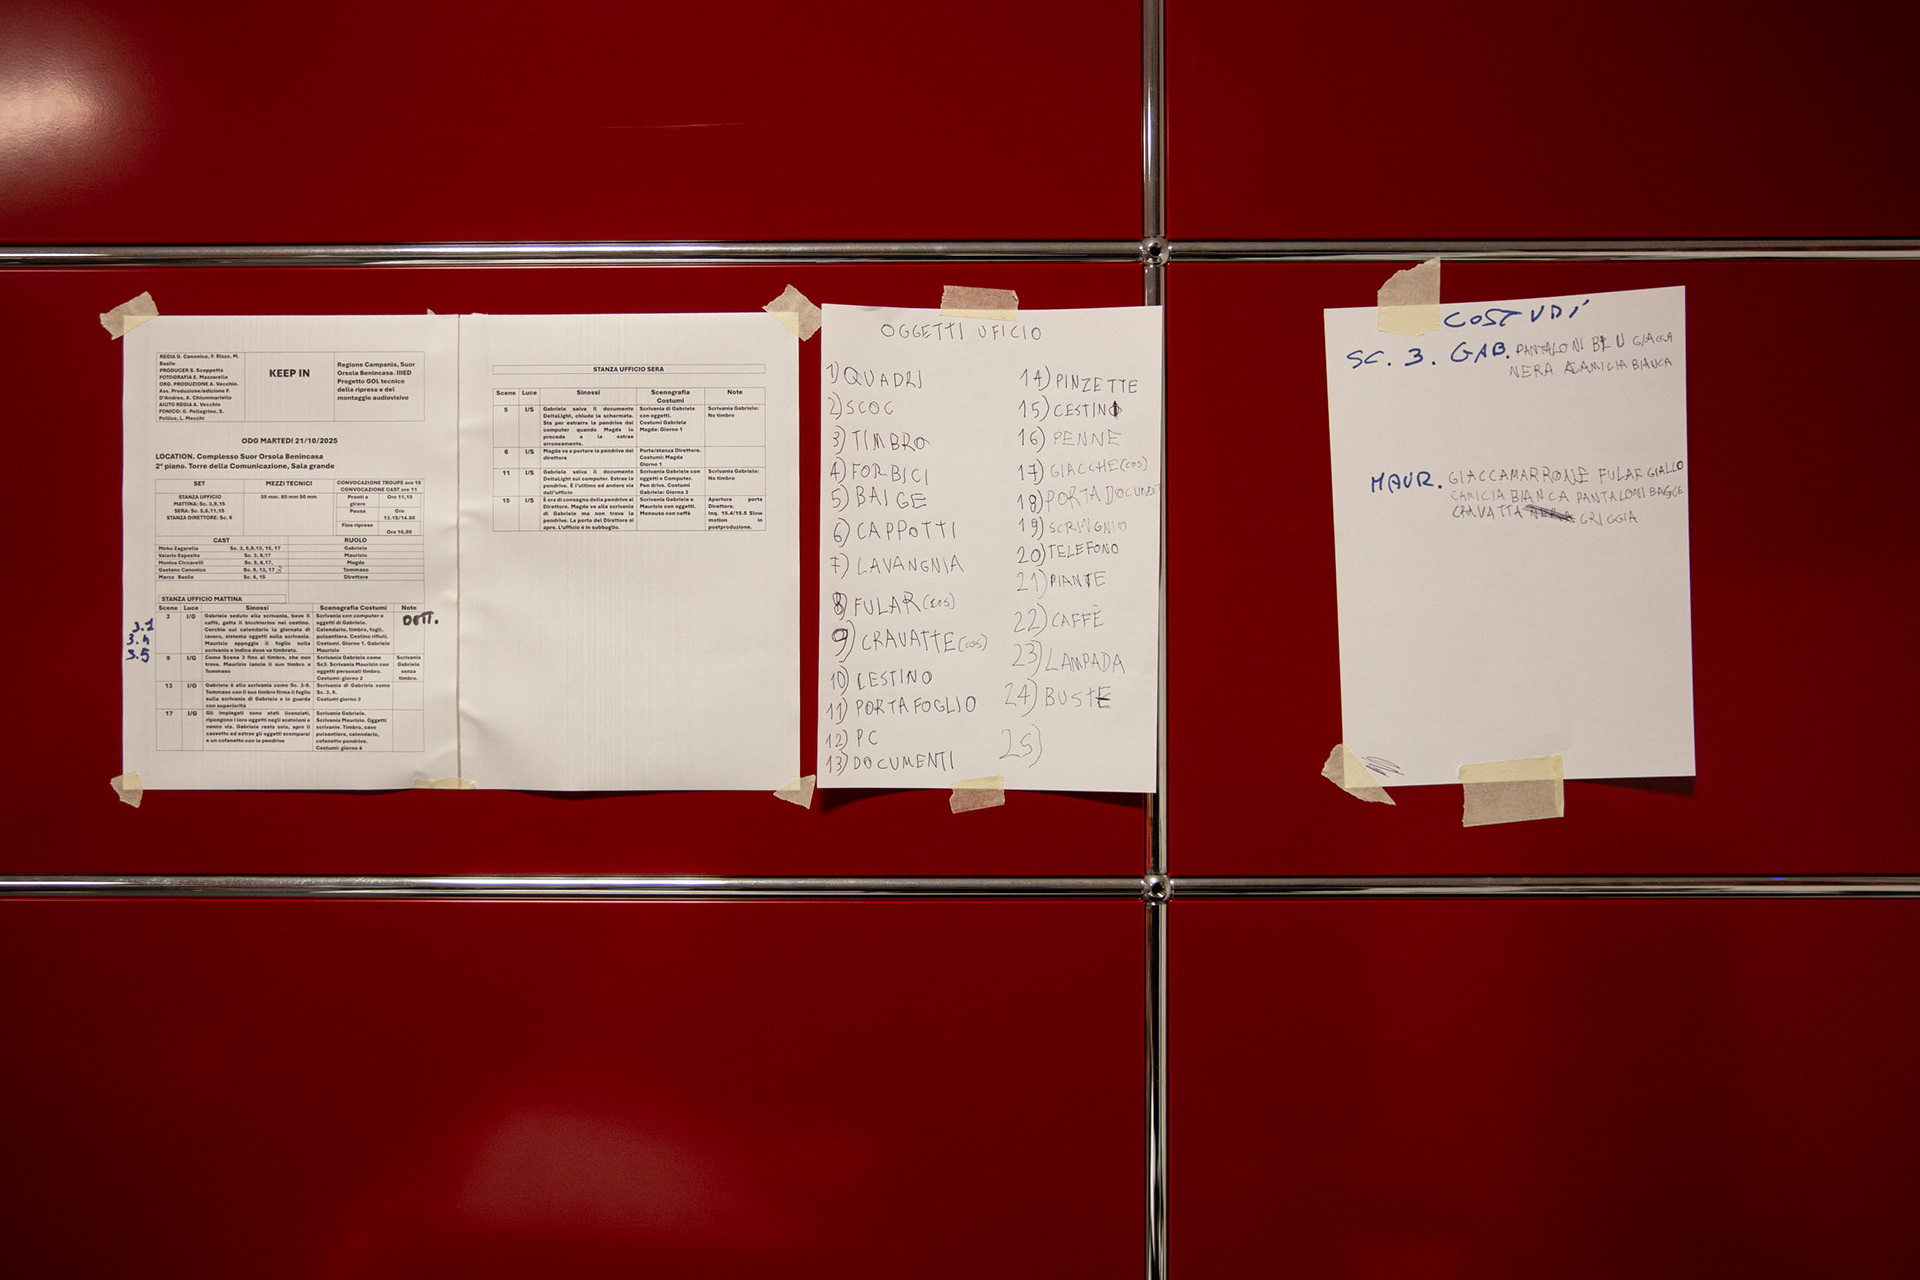 REGIA G. Canonico, F. Rizzo, M.
Basile
PRODUCER S. Scappette
FOTOGRAFIA E. Mazzarella
ORG. PRODUZIONE A. Vecchio.
Ass. Produzione/edizione F.
D'Andrea, A. Chiummariello
AIUTO REGIA A. Vecchio
FONICO: G. Pellegrino, S.
Pollice, L. Mecchi
KEEP IN
Regione Campania, Suor
Orsola Benincasa. IIIED
Progetto GOL tecnico
della ripresa e del
montaggio audiovisivo
ODG MARTEDI 21/10/2025
LOCATION. Complesso Suor Orsola Benincasa
2° piano. Torre della Comunicazione, Sala grande
SET
MEZZI TECNICI
CONVOCAZIONE TROUPE ore 10
CONVOCAZIONE CAST ore 11
STANZA UFFICIO
MATTINA: Sc. 3,9,15
SERA: 5,6,11,15
STANZA DIRETTORE: Sc. 6
35 mm. 85 mm 50 mm
Pronti a girare
Ore 11,15
Pausa
Ore 13.15/14.00
Fine riprese
Ore 16,00
CAST
RUOLO
Mirko Zagarella Sc. 3, 5,9,13, 15, 17 Gabriele
Valerio Esposito Sc. 3, 9,17 Maurizio
Monica Ciccarelli Sc. 5, 6,17, Magda
Gaetano Canonico Sc. 9, 13, 17 Tommaso
Marco Basile Sc. 6, 15 Direttore
STANZA UFFICIO MATTINA
Scene Luce Sinossi Scenografia Costumi Note
3.1
3.4
3.5
3 I/G
Gabriele seduto alla scrivania, beve il
caffè, getta il bicchierino nel cestino.
Cerchia sul calendario la giornata di
lavoro, sistema oggetti sulla scrivania.
Maurizio appoggia il foglio sulla
scrivania e indica dove va timbrato.
Scrivania con computer e
oggetti di Gabriele.
Calendario, timbro, fogli,
pulsantiera. Cestino rifiuti.
Costumi. Giorno 1. Gabriele
Maurizio
DETT.
9 I/G
Come Scena 3 fino al timbro, che non
trova. Maurizio lancia il suo timbro a
Tommaso
Scrivania Gabriele come
Sc3. Scrivania Maurizio con
oggetti personali timbro.
Costumi: giorno 2
Scrivania
Gabriele
senza
timbro.
13 I/G
Gabriele è alla scrivania come Sc. 3-9.
Tommaso con il suo timbro firma il foglio
sulla scrivania di Gabriele e lo guarda
con superiorità
Scrivania di Gabriele come
Sc. 3, 9.
Costumi giorno 3
17 I/G
Gli impiegati sono stati licenziati,
ripongono i loro oggetti negli scatoloni e
vanno via. Gabriele resta solo, apre il
cassetto ed estrae gli oggetti scomparsi
e un cofanetto con la pendrive
Scrivania Gabriele.
Scrivania Maurizio. Oggetti
scrivanie. Timbro, cavo
pulsantiera, calendario,
cofanetto pendrive.
Costumi: giorno 4
STANZA UFFICIO SERA
Scene Luce Sinossi Scenografia Costumi Note
5 I/S
Gabriele salva il documento
DeltaLight, chiude la schermata.
Sta per estrarre la pendrive dal
computer quando Magda lo
precede e la estrae
erroneamente.
Scrivania di Gabriele
con oggetti.
Costumi Gabriele
Magda: Giorno 1
Scrivania Gabriele:
No timbro
6 I/S
Magda va a portare la pendrive dal
direttore
Porta/stanza Direttore.
Costumi: Magda
Giorno 1
11 I/S
Gabriele salva il documento
DeltaLight sul computer. Estrae la
pendrive. È l'ultimo ad andare via
dall'ufficio
Scrivania Gabriele con
oggetti e Computer.
Pen drive. Costumi
Gabriele: Giorno 3
Scrivania Gabriele:
No timbro
15 I/S
È ora di consegna della pendrive al
Direttore. Magda va alla scrivania
di Gabriele ma non trova la
pendrive. La porta del Direttore si
apre. L'ufficio è in subbuglio.
Scrivania Gabriele e
Maurizio con oggetti.
Monouso con caffè
Apertura porta
Direttore.
Inq. 15.4/15.5 Slow
motion in
postproduzione.
OGGETTI UFICIO
1) QUADRI
2) SCOC
3) TIMBRO
4) FORBICI
5) BAIGE
6) CAPPOTTI
7) LAVANGNIA
8) FULAR (cos)
9) CRAVATTE (cos)
10) CESTINO
11) PORTAFOGLIO
12) PC
13) DOCUMENTI
14) PINZETTE
15) CESTINO
16) PENNE
17) GIACCHE (cos)
18) PORTA DOCUMENT
19) SCRIVGNIO
20) TELEFONO
21) PIANTE
22) CAFFÈ
23) LAMPADA
24) BUSTE
25)
COSTUDÍ
SC. 3. GAB. PANTALONI BLU GIACCA
NERA CAMICIA BIANCA
MAUR. GIACCA MARRONE FULAR GIALLO
CAMICIA BIANCA PANTALONI BAGCE
CRAVATTA GRIGGIA